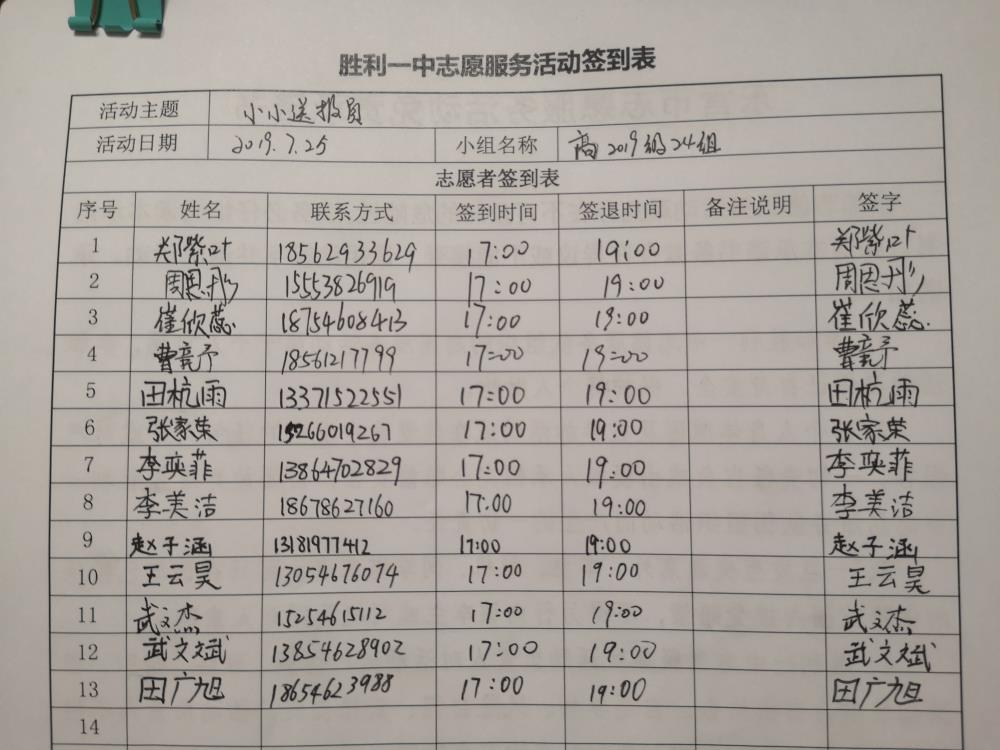 胜利一中志愿服务活动签到表
活动主题 小小送报员
活动日期 2019.7.25 小组名称 高2019级24组
志愿者签到表
序号 姓名 联系方式 签到时间 签退时间 备注说明 签字
1 郑紫叶 18562933629 17:00 19:00 郑紫叶
2 周恩彤 15553826919 17:00 19:00 周恩彤
3 崔欣蕊 18754608413 17:00 19:00 崔欣蕊
4 曹竞予 18561217799 17:00 19:00 曹竞予
5 田杭雨 13371522551 17:00 19:00 田杭雨
6 张家荣 15266019267 17:00 19:00 张家荣
7 李奕菲 13864702829 17:00 19:00 李奕菲
8 李美洁 18678627160 17:00 19:00 李美洁
9 赵子涵 13181977412 17:00 19:00 赵子涵
10 王云昊 13054676074 17:00 19:00 王云昊
11 武文杰 15254615112 17:00 19:00 武文杰
12 武文斌 13854628902 17:00 19:00 武文斌
13 田广旭 18654623988 17:00 19:00 田广旭
14